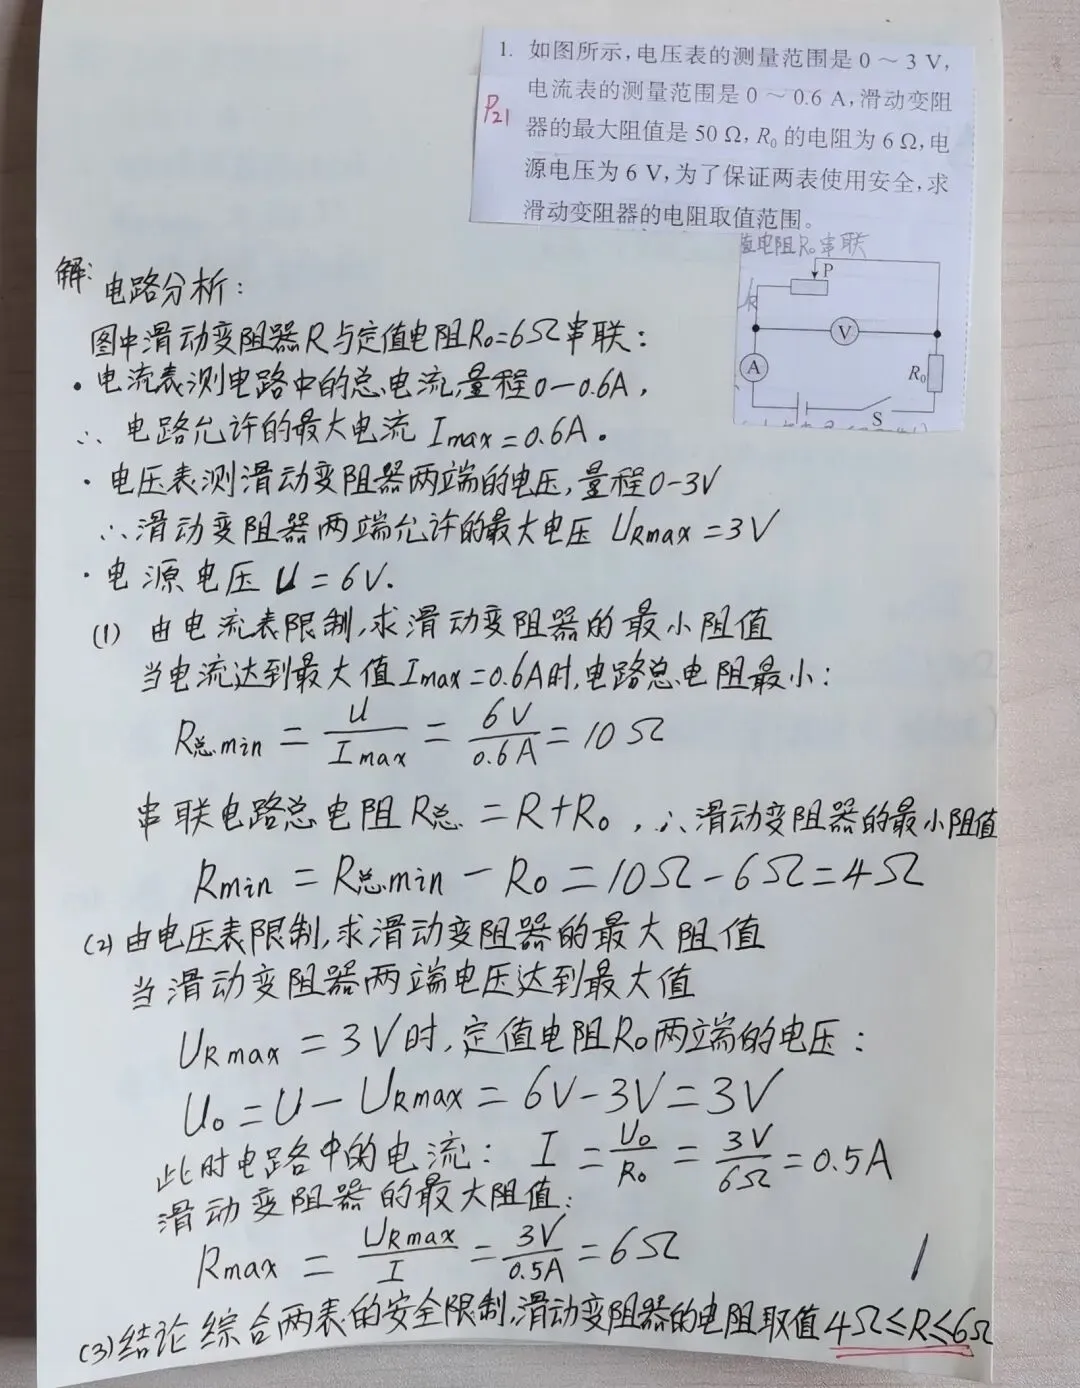 1. 如图所示,电压表的测量范围是 0 ~ 3 V,
电流表的测量范围是 0 ~ 0.6 A,滑动变阻
P21
器的最大阻值是 50 Ω, R₀ 的电阻为 6 Ω,电
源电压为 6 V,为了保证两表使用安全,求
滑动变阻器的电阻取值范围。
值电阻R₀串联
P
V
A
R₀
S
解:电路分析:
图中滑动变阻器R与定值电阻R₀=6Ω串联:
·电流表测电路中的总电流,量程0-0.6A,
∴ 电路允许的最大电流 Imax=0.6A。
·电压表测滑动变阻器两端的电压,量程0-3V
∴滑动变阻器两端允许的最大电压 URmax=3V
·电源电压U=6V.
(1) 由电流表限制,求滑动变阻器的最小阻值
当电流达到最大值Imax=0.6A时,电路总电阻最小:
R总min = U/Imax = 6V/0.6A = 10Ω
串联电路总电阻R总=R+R₀,∴滑动变阻器的最小阻值
Rmin=R总min-R₀=10Ω-6Ω=4Ω
(2)由电压表限制,求滑动变阻器的最大阻值
当滑动变阻器两端电压达到最大值
URmax=3V时,定值电阻R₀两端的电压:
U₀=U-URmax=6V-3V=3V
此时电路中的电流: I=U₀/R₀=3V/6Ω=0.5A
滑动变阻器的最大阻值:
Rmax=URmax/I=3V/0.5A=6Ω
(3)结论 综合两表的安全限制,滑动变阻器的电阻取值4Ω≤R≤6Ω